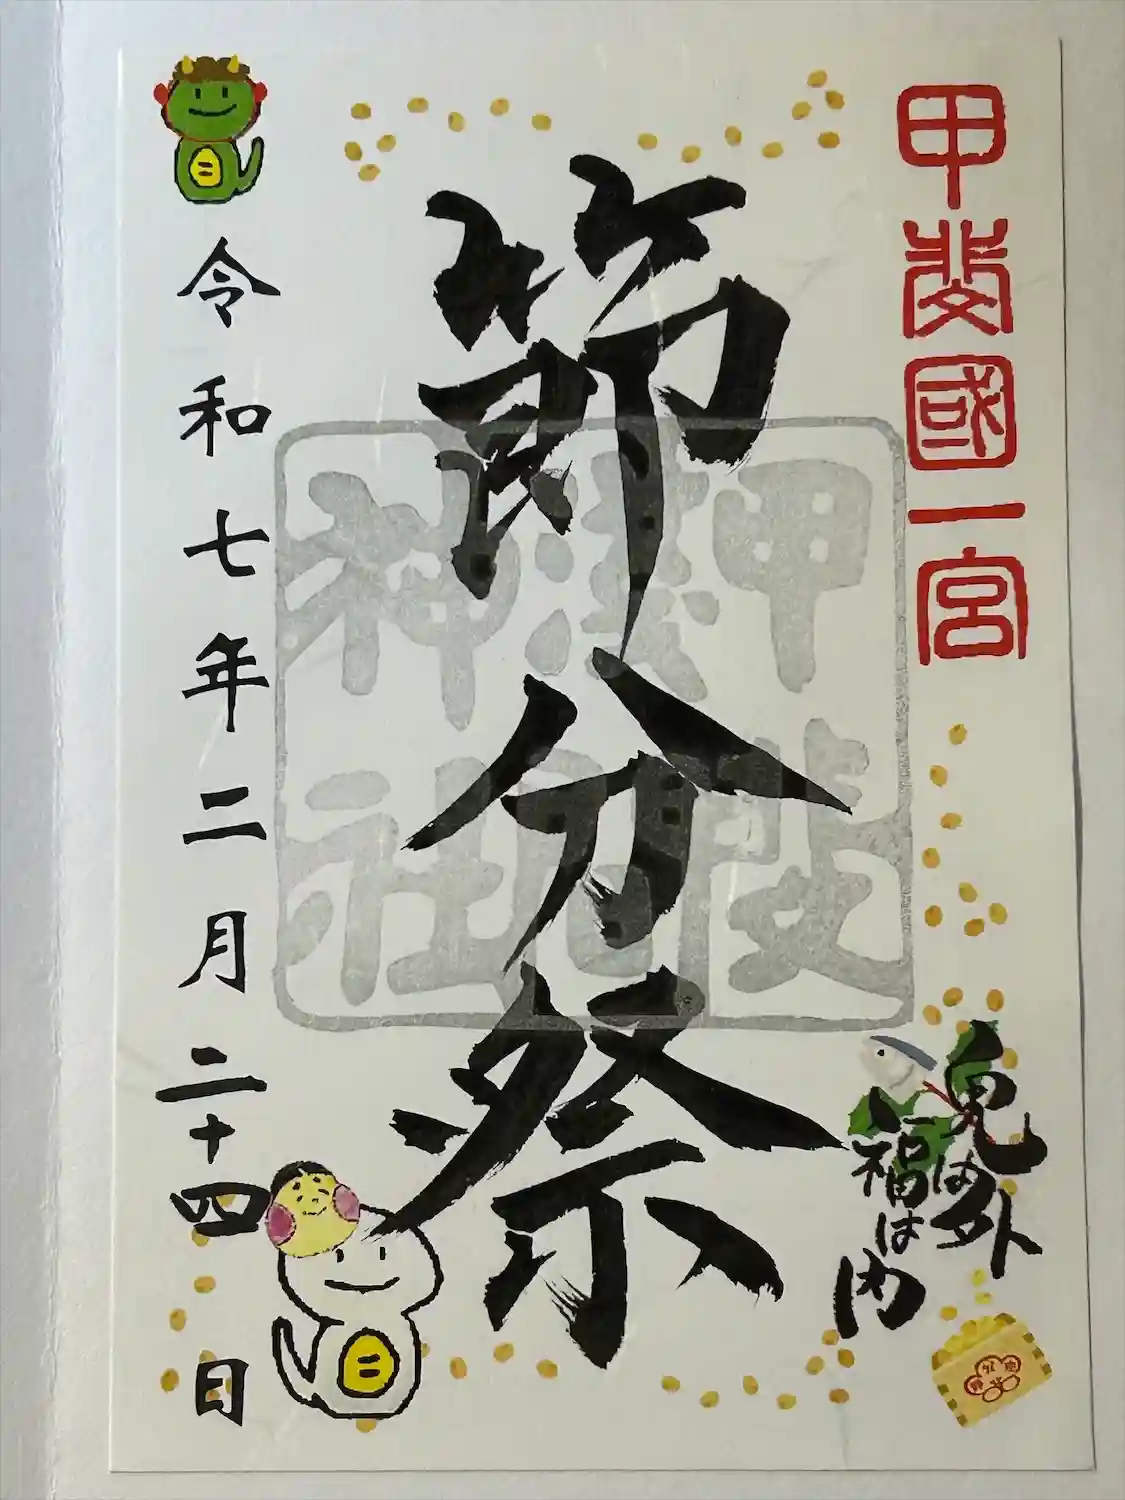 甲斐國一宮
節分祭
甲斐國
浅間
神社
鬼は外
福は内
令和七年二月二十四日